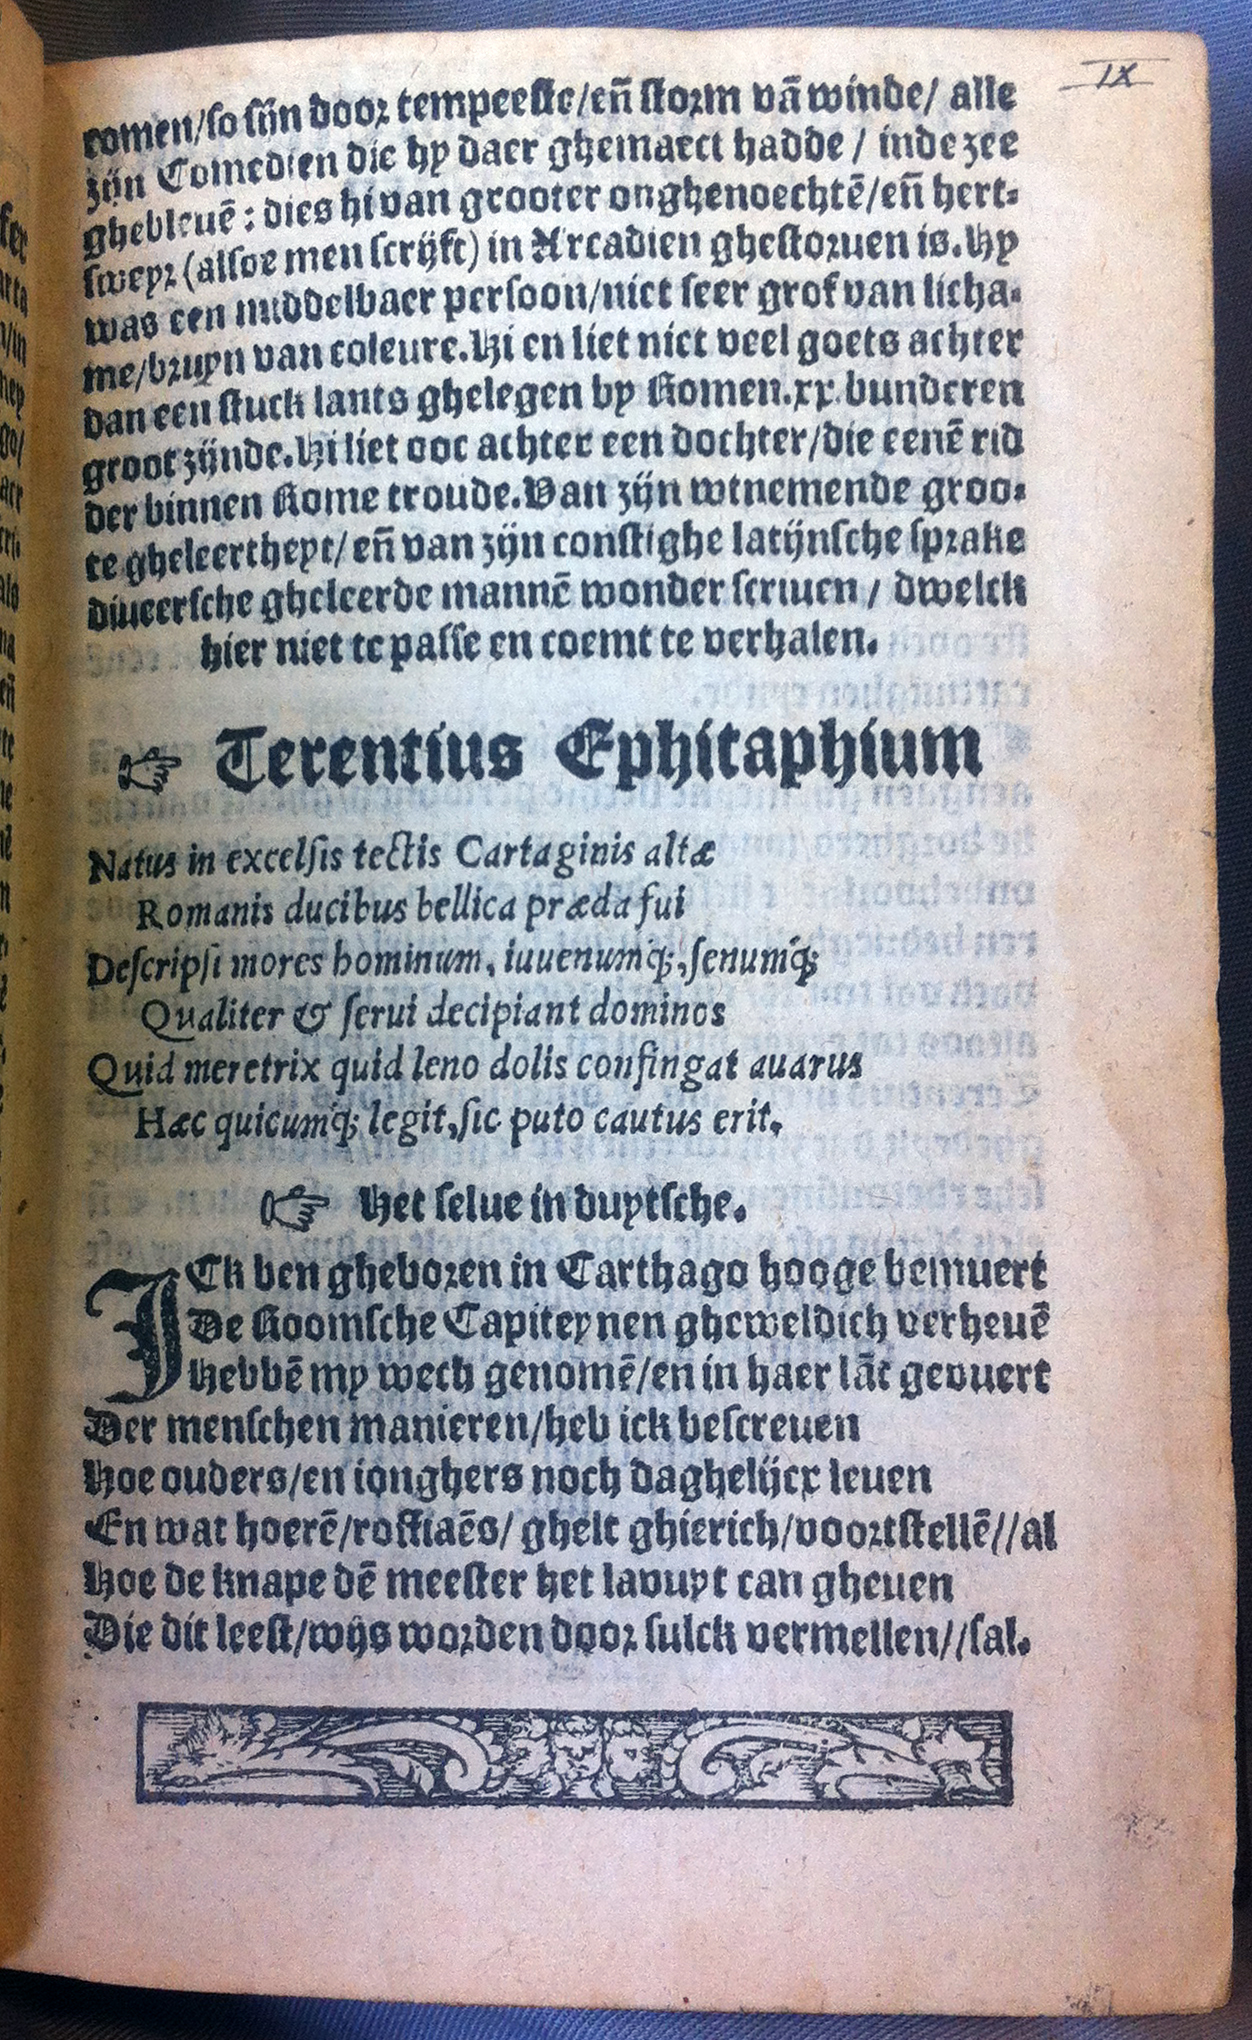 IX
comen/so sijn door tempeeste/eñ storm vā winde/ alle
zijn Comedien die hy daer ghemaect hadde / inde zee
ghebleuē : dies hi van grooter onghenoechtē/eñ hert-
sweyr (alsoe men scrijft) in Arcadien ghestoruen is. Hy
was een middelbaer persoon/niet seer grof van licha-
me/bruyn van coleure. Hi en liet niet veel goets achter
dan een stuck lants ghelegen by Romen. xx. bunderen
groot zijnde. Hi liet ooc achter een dochter/die eenē rid
der binnen Rome troude. Van zijn wtnemende groo-
te gheleertheyt/ eñ van zijn constighe latijnsche sprake
diueersche gheleerde mannē wonder scriuen / dwelck
hier niet te passe en coemt te verhalen.
☞ Terentius Ephitaphium
Natus in excelsis tectis Cartaginis altæ
Romanis ducibus bellica præda fui
Descripsi mores hominum, iuuenumq́;, senumq́;
Qualiter & serui decipiant dominos
Quid meretrix quid leno dolis confingat auarus
Hæc quicumq́; legit, sic puto cautus erit.
☞ Het selue in duytsche.
ICk ben gheboren in Carthago hooge bemuert
De Roomsche Capiteynen gheweldich verheuē
Hebbē my wech genomē/en in haer lāt geuuert
Der menschen manieren/heb ick bescreuen
Hoe ouders/en ionghers noch daghelijcx leuen
En wat hoerē/roffiaēs/ ghelt ghierich/voortstellē//al
Hoe de knape dē meester het lavuyt can gheuen
Die dit leest/wijs worden door sulck vermellen//sal.